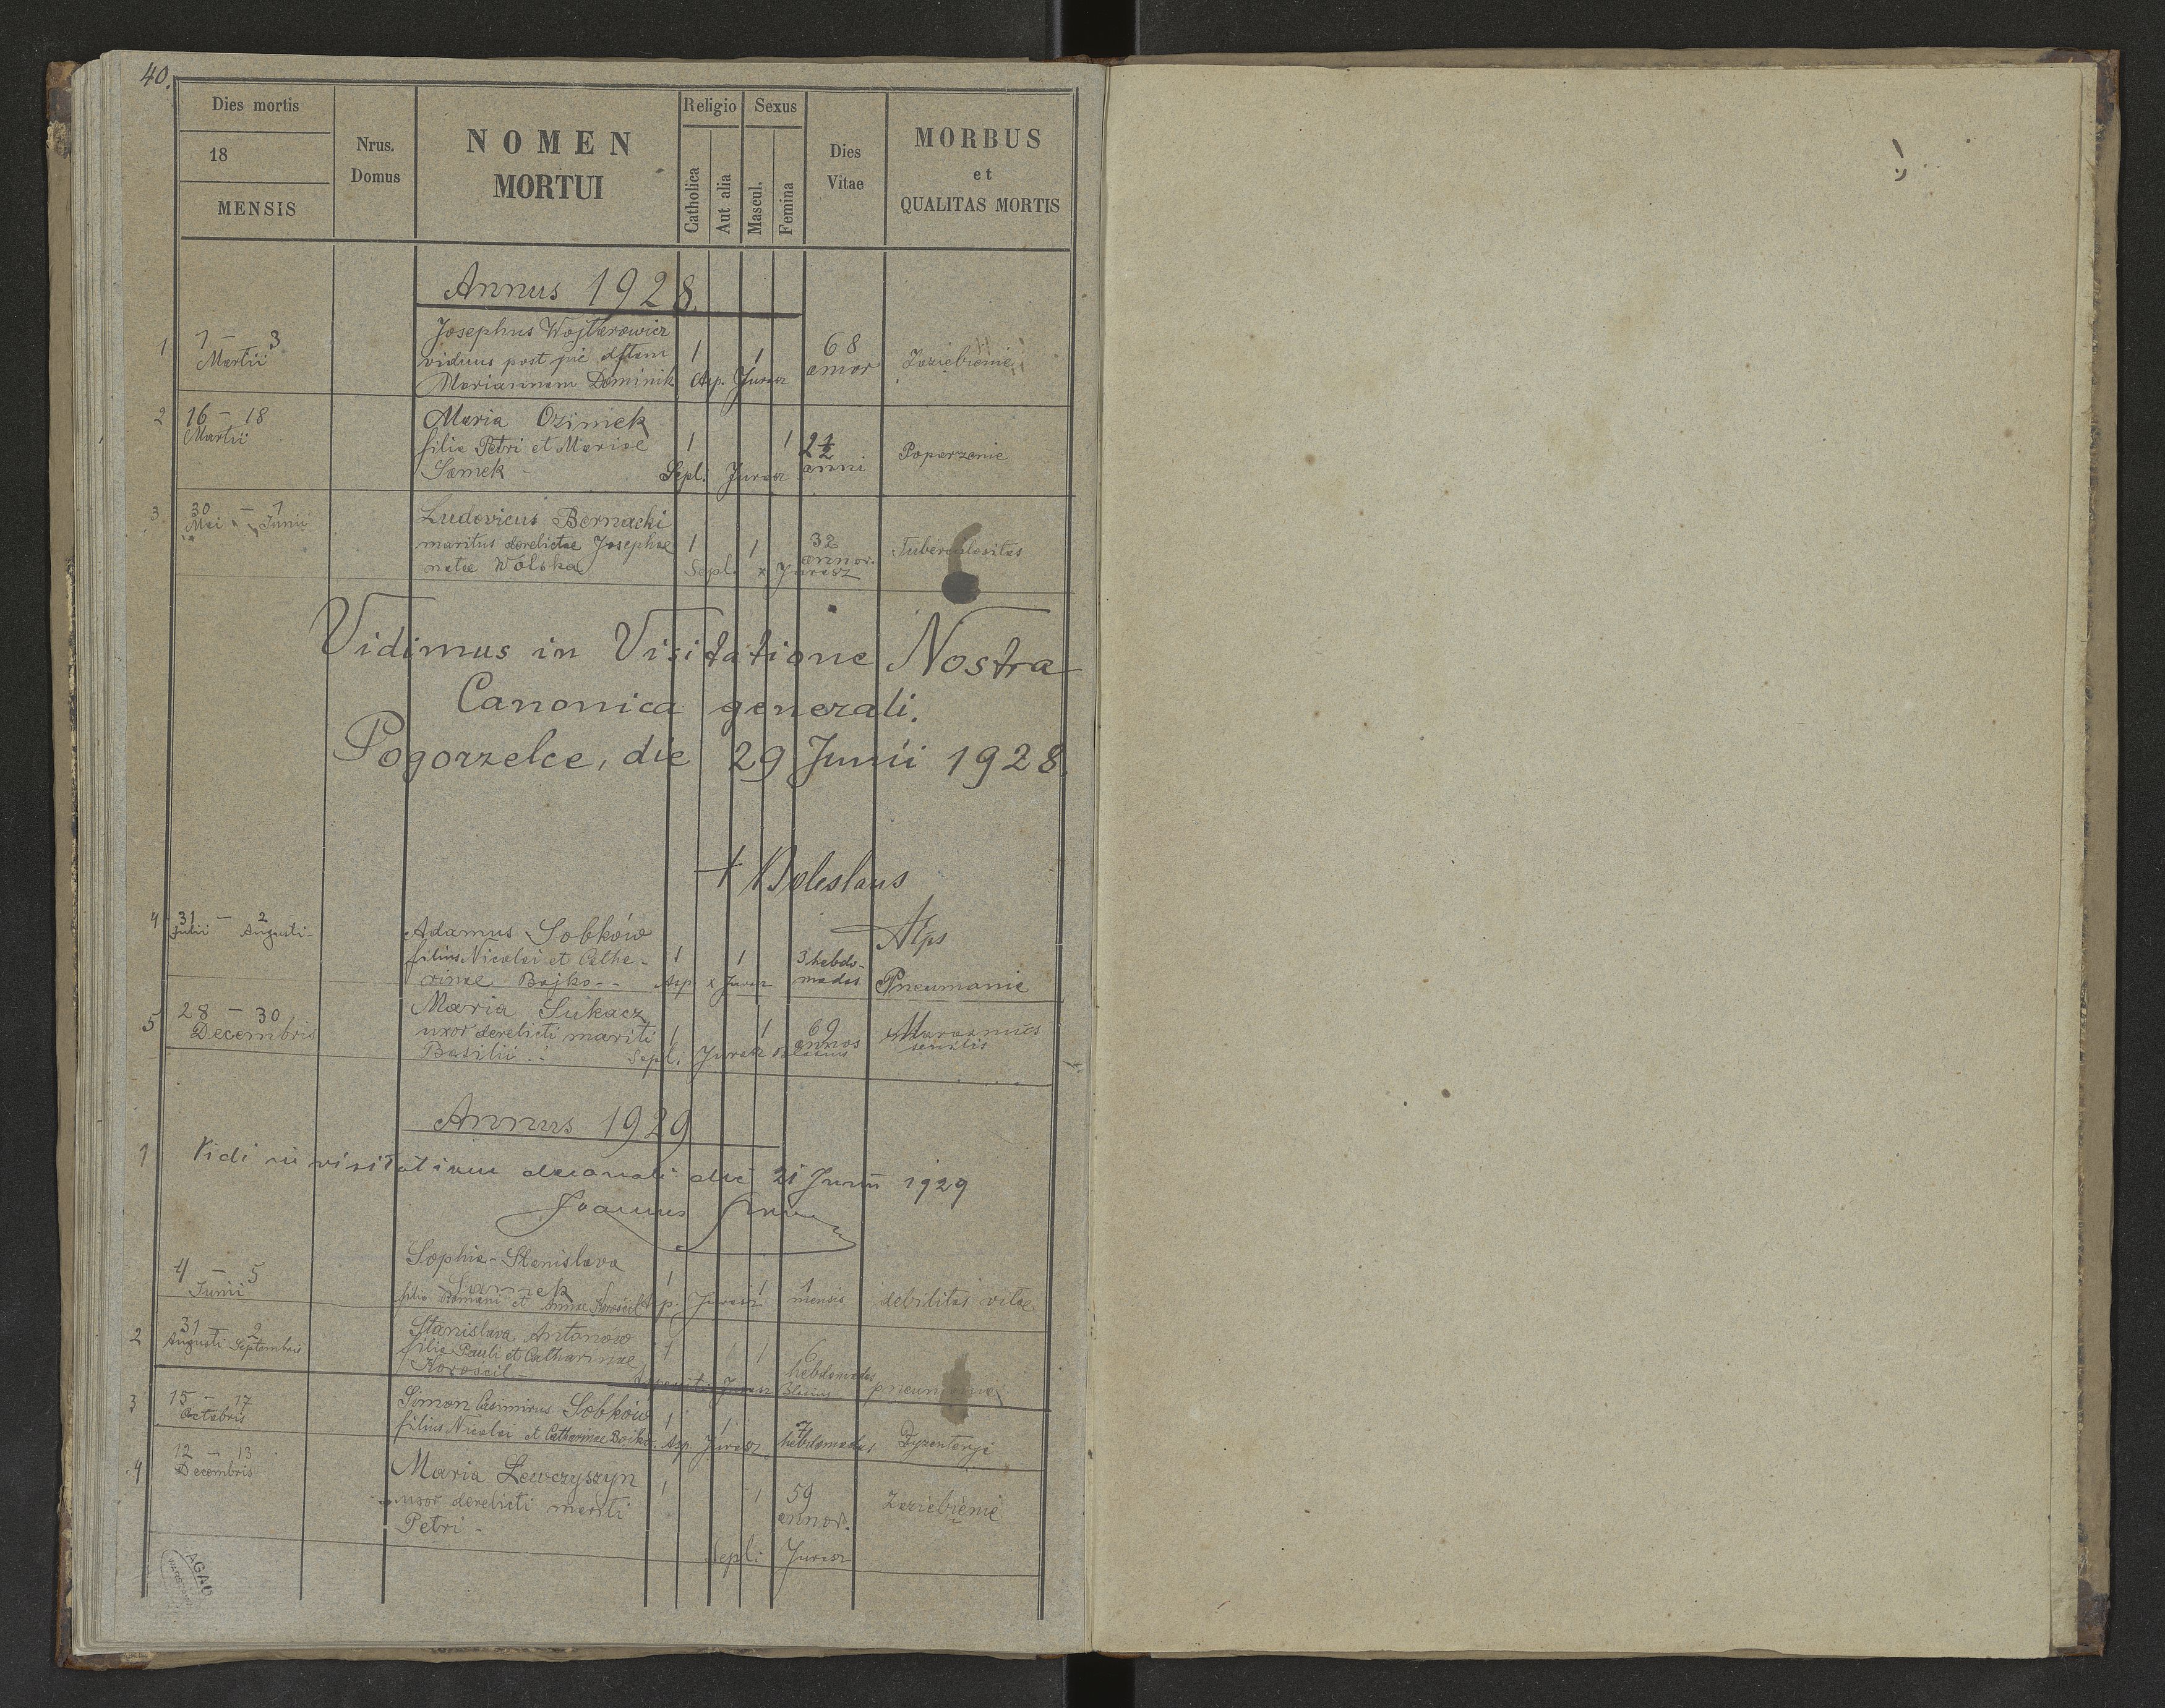 40.
Dies mortis
18
MENSIS
Nrus.
Domus
NOMEN
MORTUI
Religio
Catholica
Aut alia
Sexus
Mascul.
Femina
Dies
Vitae
MORBUS
et
QUALITAS MORTIS
Annus 1928
1 1 – 3
Martii
Josephus Wojtarowicz
viduus post pie dftam
Mariannam Dominik
1 1
Asp. Jurasz
68
annor
Zaziębienie
2 16 – 18
Martii
Maria Ozimek
filia Petri et Mariae
Samek
1 1
Sepl. Jurasz
2 1/2
anni
Poparzenie
3 30 – 1
Mai – Junii
Ludovicus Bernacki
maritus derelictae Josephae
natae Wolska
1 1
Sepl. x Jurasz
32
annor.
Tuberculositas
Vidimus in Visitatione Nostra
Canonica generali.
Pogorzelce, die 29 Junii 1928.
+ Boleslaus
Alps
4 31 – 2
Julii Augusti
Adamus Sobków
filius Nicolai et Catha-
rinae Bojko
1 1
Asp. x Jurasz
3 hebdo-
madas
Pneumonie
5 28 – 30
Decembris
Maria Łukacz
uxor derelicti mariti
Basilii
1 1
Sepl. Jurasz
69
annos
Marasmus
senilis
Annus 1929
1 Vidi in visitatione decanali die 21 Junii 1929
Joannes
4 – 5
Junii
Sophia-Stanislava
Samek
filia Romani et Annae Korościl
1 1
Asp. Jurasz
1
mensis
debilitas vitae
2 31 – 2
Augusti Septembris
Stanislava Antonow
filia Pauli et Catharinae
Korościl
1 1
Jurasz
6
hebdomadas
pneumonia
3 15 – 17
Octobris
Simon Casimirus Sobków
filius Nicolai et Catharinae Bojko
1 1
Asp. Jurasz
7
hebdomadas
Dyzenterji
4 12 – 13
Decembris
Maria Lewczyszyn
uxor derelicti mariti
Petri
1 1
Sepl. Jurasz
59
annor.
Zaziębienie
AGAD